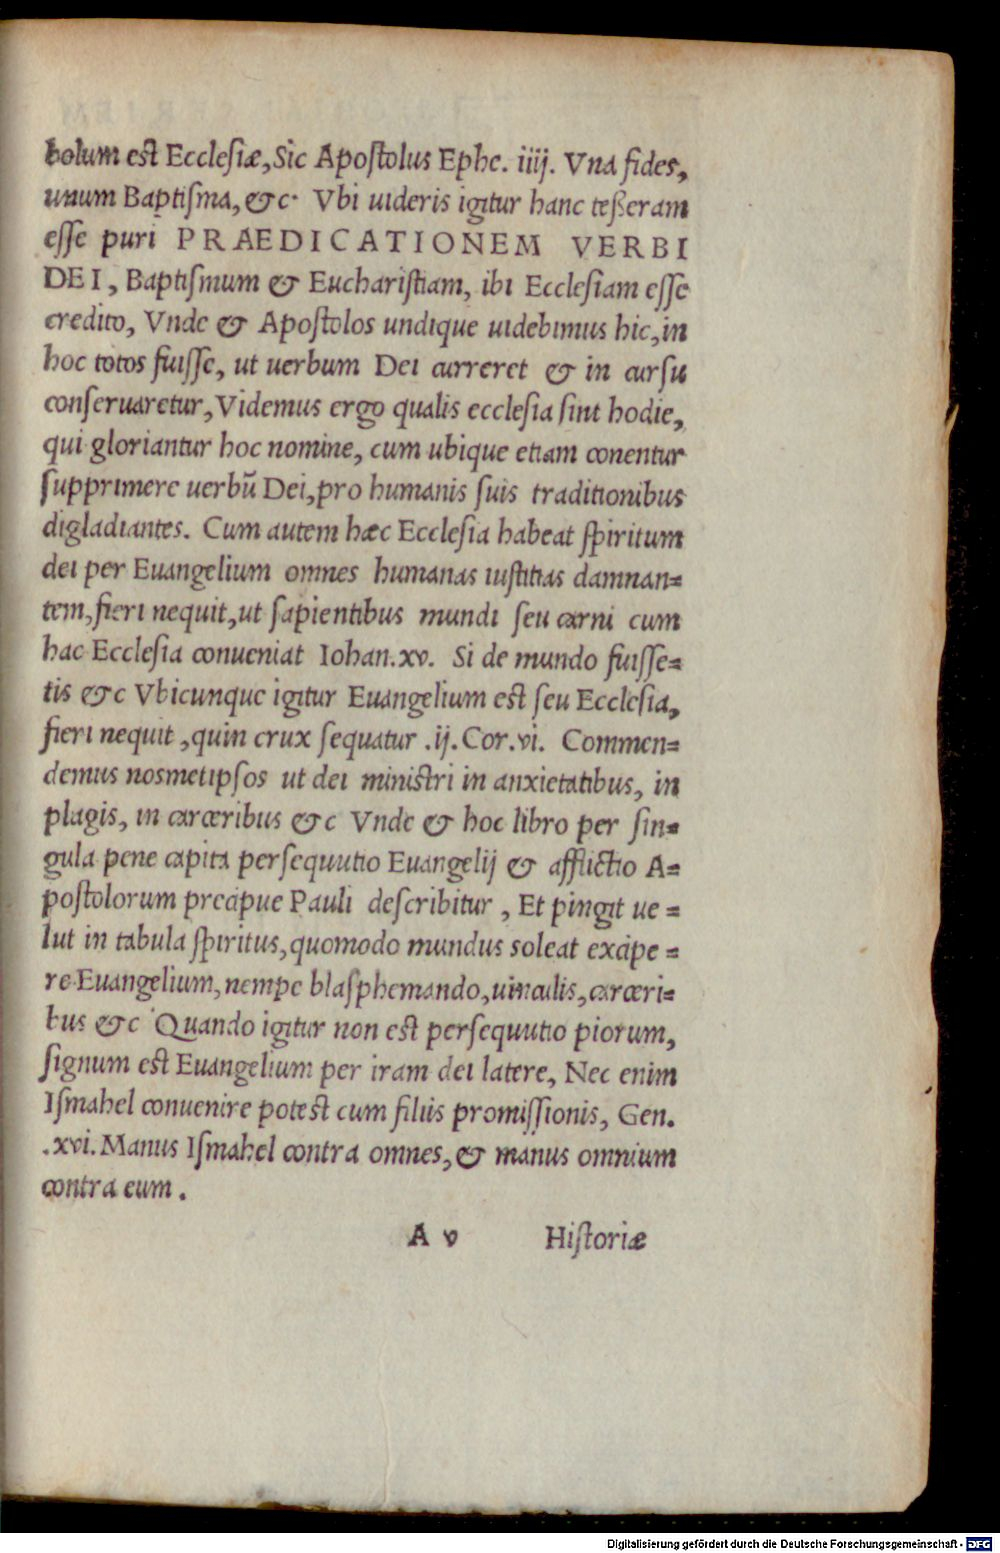 bolum est Ecclesiæ, Sic Apoſtolus Ephe. iiij. Vna fides,
unum Baptiſma, &c· Vbi uideris igitur hanc teßeram
eſſe puri PRAEDICATIONEM VERBI
DEI, Baptiſmum & Euchariſtiam, ibi Eccleſiam eſſe
credito, Vnde & Apoſtolos undique uidebimus hic, in
hoc totos fuiſſe, ut uerbum Dei curreret & in curſu
conſeruaretur, Videmus ergo qualis eccleſia ſint hodie,
qui gloriantur hoc nomine, cum ubique etiam conentur
ſupprimere uerbū Dei, pro humanis ſuis traditionibus
digladiantes. Cum autem hæc Eccleſia habeat ſpiritum
dei per Euangelium omnes humanas iuſtitias damnan=
tem, fieri nequit, ut ſapientibus mundi ſeu carni cum
hac Eccleſia conueniat Iohan.xv. Si de mundo fuiſſe=
tis &c Vbicunque igitur Euangelium est ſeu Eccleſia,
fieri nequit, quin crux ſequatur .ij. Cor.vi. Commen=
demus nosmetipſos ut dei miniſtri in anxietatibus, in
plagis, in carceribus &c Vnde & hoc libro per ſin=
gula pene capita perſequutio Euangelij & afflictio A=
poſtolorum precipue Pauli deſcribitur, Et pingit ue=
lut in tabula ſpiritus, quomodo mundus soleat excipe=
re Euangelium, nempe blaſphemando, uinculis, carceri=
bus &c Quando igitur non est perſequutio piorum,
ſignum est Euangelium per iram dei latere, Nec enim
Iſmahel conuenire potest cum filiis promiſſionis, Gen.
.xvi. Manus Iſmahel contra omnes, & manus omnium
contra eum.
A v Hiſtoriæ
Digitalisierung gefördert durch die Deutsche Forschungsgemeinschaft - DFG